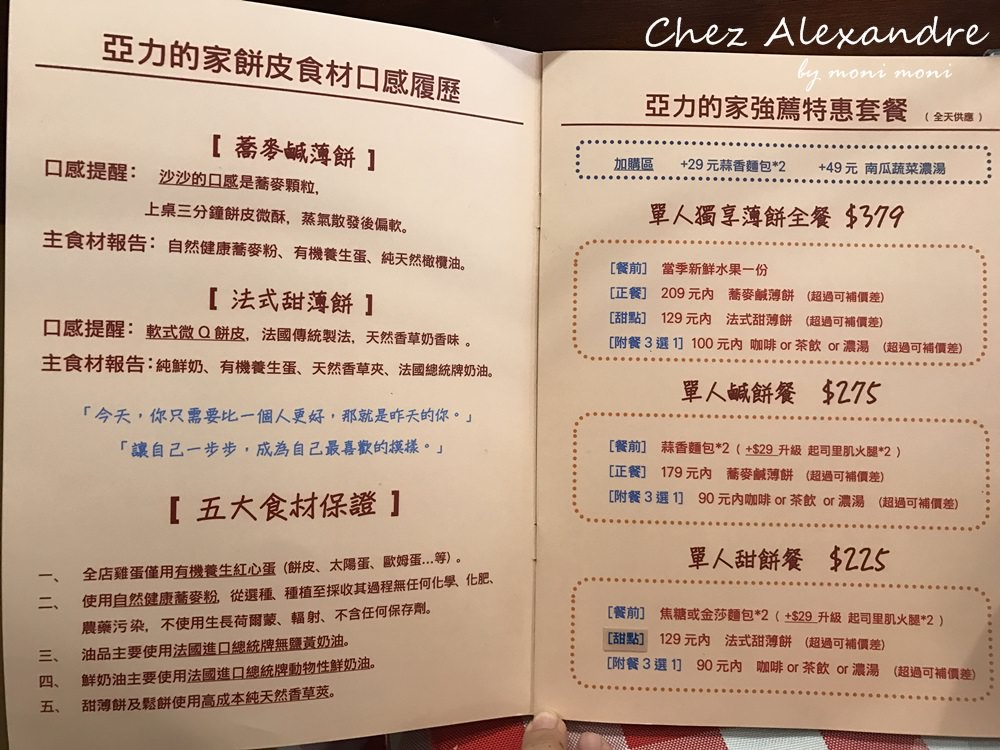 Chez Alexandre
by moni moni
亞力的家餅皮食材口感履歷
[ 蕎麥鹹薄餅 ]
口感提醒： 沙沙的口感是蕎麥顆粒，
上桌三分鐘餅皮微酥，蒸氣散發後偏軟。
主食材報告：自然健康蕎麥粉、有機養生蛋、純天然橄欖油。
[ 法式甜薄餅 ]
口感提醒：軟式微Q餅皮，法國傳統製法，天然香草奶香味。
主食材報告：純鮮奶、有機養生蛋、天然香草夾、法國總統牌奶油。
「今天，你只需要比一個人更好，那就是昨天的你。」
「讓自己一步步，成為自己最喜歡的模樣。」
[ 五大食材保證 ]
一、 全店雞蛋僅用有機養生紅心蛋 (餅皮、太陽蛋、歐姆蛋...等) 。
二、 使用自然健康蕎麥粉，從選種、種植至採收其過程無任何化學、化肥、
農藥污染，不使用生長荷爾蒙、輻射、不含任何保存劑。
三、 油品主要使用法國進口總統牌無鹽黃奶油。
四、 鮮奶油主要使用法國進口總統牌動物性鮮奶油。
五、 甜薄餅及鬆餅使用高成本純天然香草莢。
亞力的家強薦特惠套餐 ( 全天供應 )
加購區 +29 元蒜香麵包*2 +49元 南瓜蔬菜濃湯
單人獨享薄餅全餐 $379
[餐前] 當季新鮮水果一份
[正餐] 209 元內 蕎麥鹹薄餅 (超過可補價差)
[甜點] 129 元內 法式甜薄餅 (超過可補價差)
[附餐 3 選 1] 100 元內 咖啡 or 茶飲 or 濃湯 (超過可補價差)
單人鹹餅餐 $275
[餐前] 蒜香麵包*2 ( +$29 升級 起司里肌火腿*2 )
[正餐] 179 元內 蕎麥鹹薄餅 (超過可補價差)
[附餐 3 選 1] 90 元內咖啡 or 茶飲 or 濃湯 (超過可補價差)
單人甜餅餐 $225
[餐前] 焦糖或金莎麵包*2 ( +$29 升級 起司里肌火腿*2 )
[甜點] 129 元內 法式甜薄餅 (超過可補價差)
[附餐 3 選 1] 90 元內 咖啡 or 茶飲 or 濃湯 (超過可補價差)